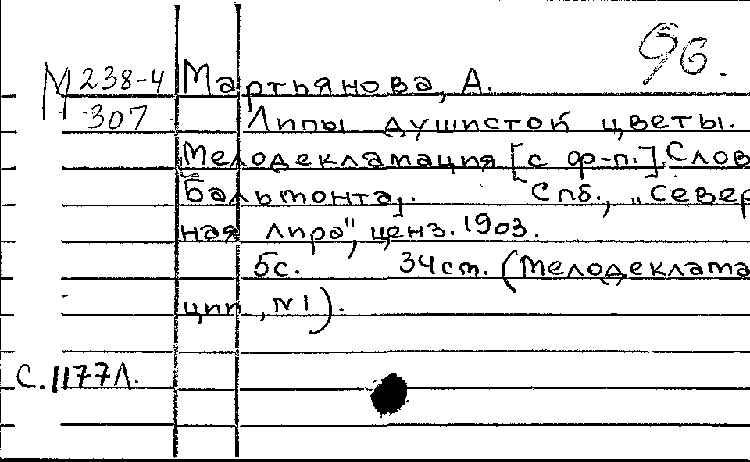 96.
М 238-4 Мартьянова, А.
307 Липы душистой цветы.
Мелодекламация [с ф-п.]. Слов
Бальмонта. Спб., „Север
ная лира", ценз. 1903.
5с. 34ст. (Мелодеклама
ции, №1).
С.1177Л.